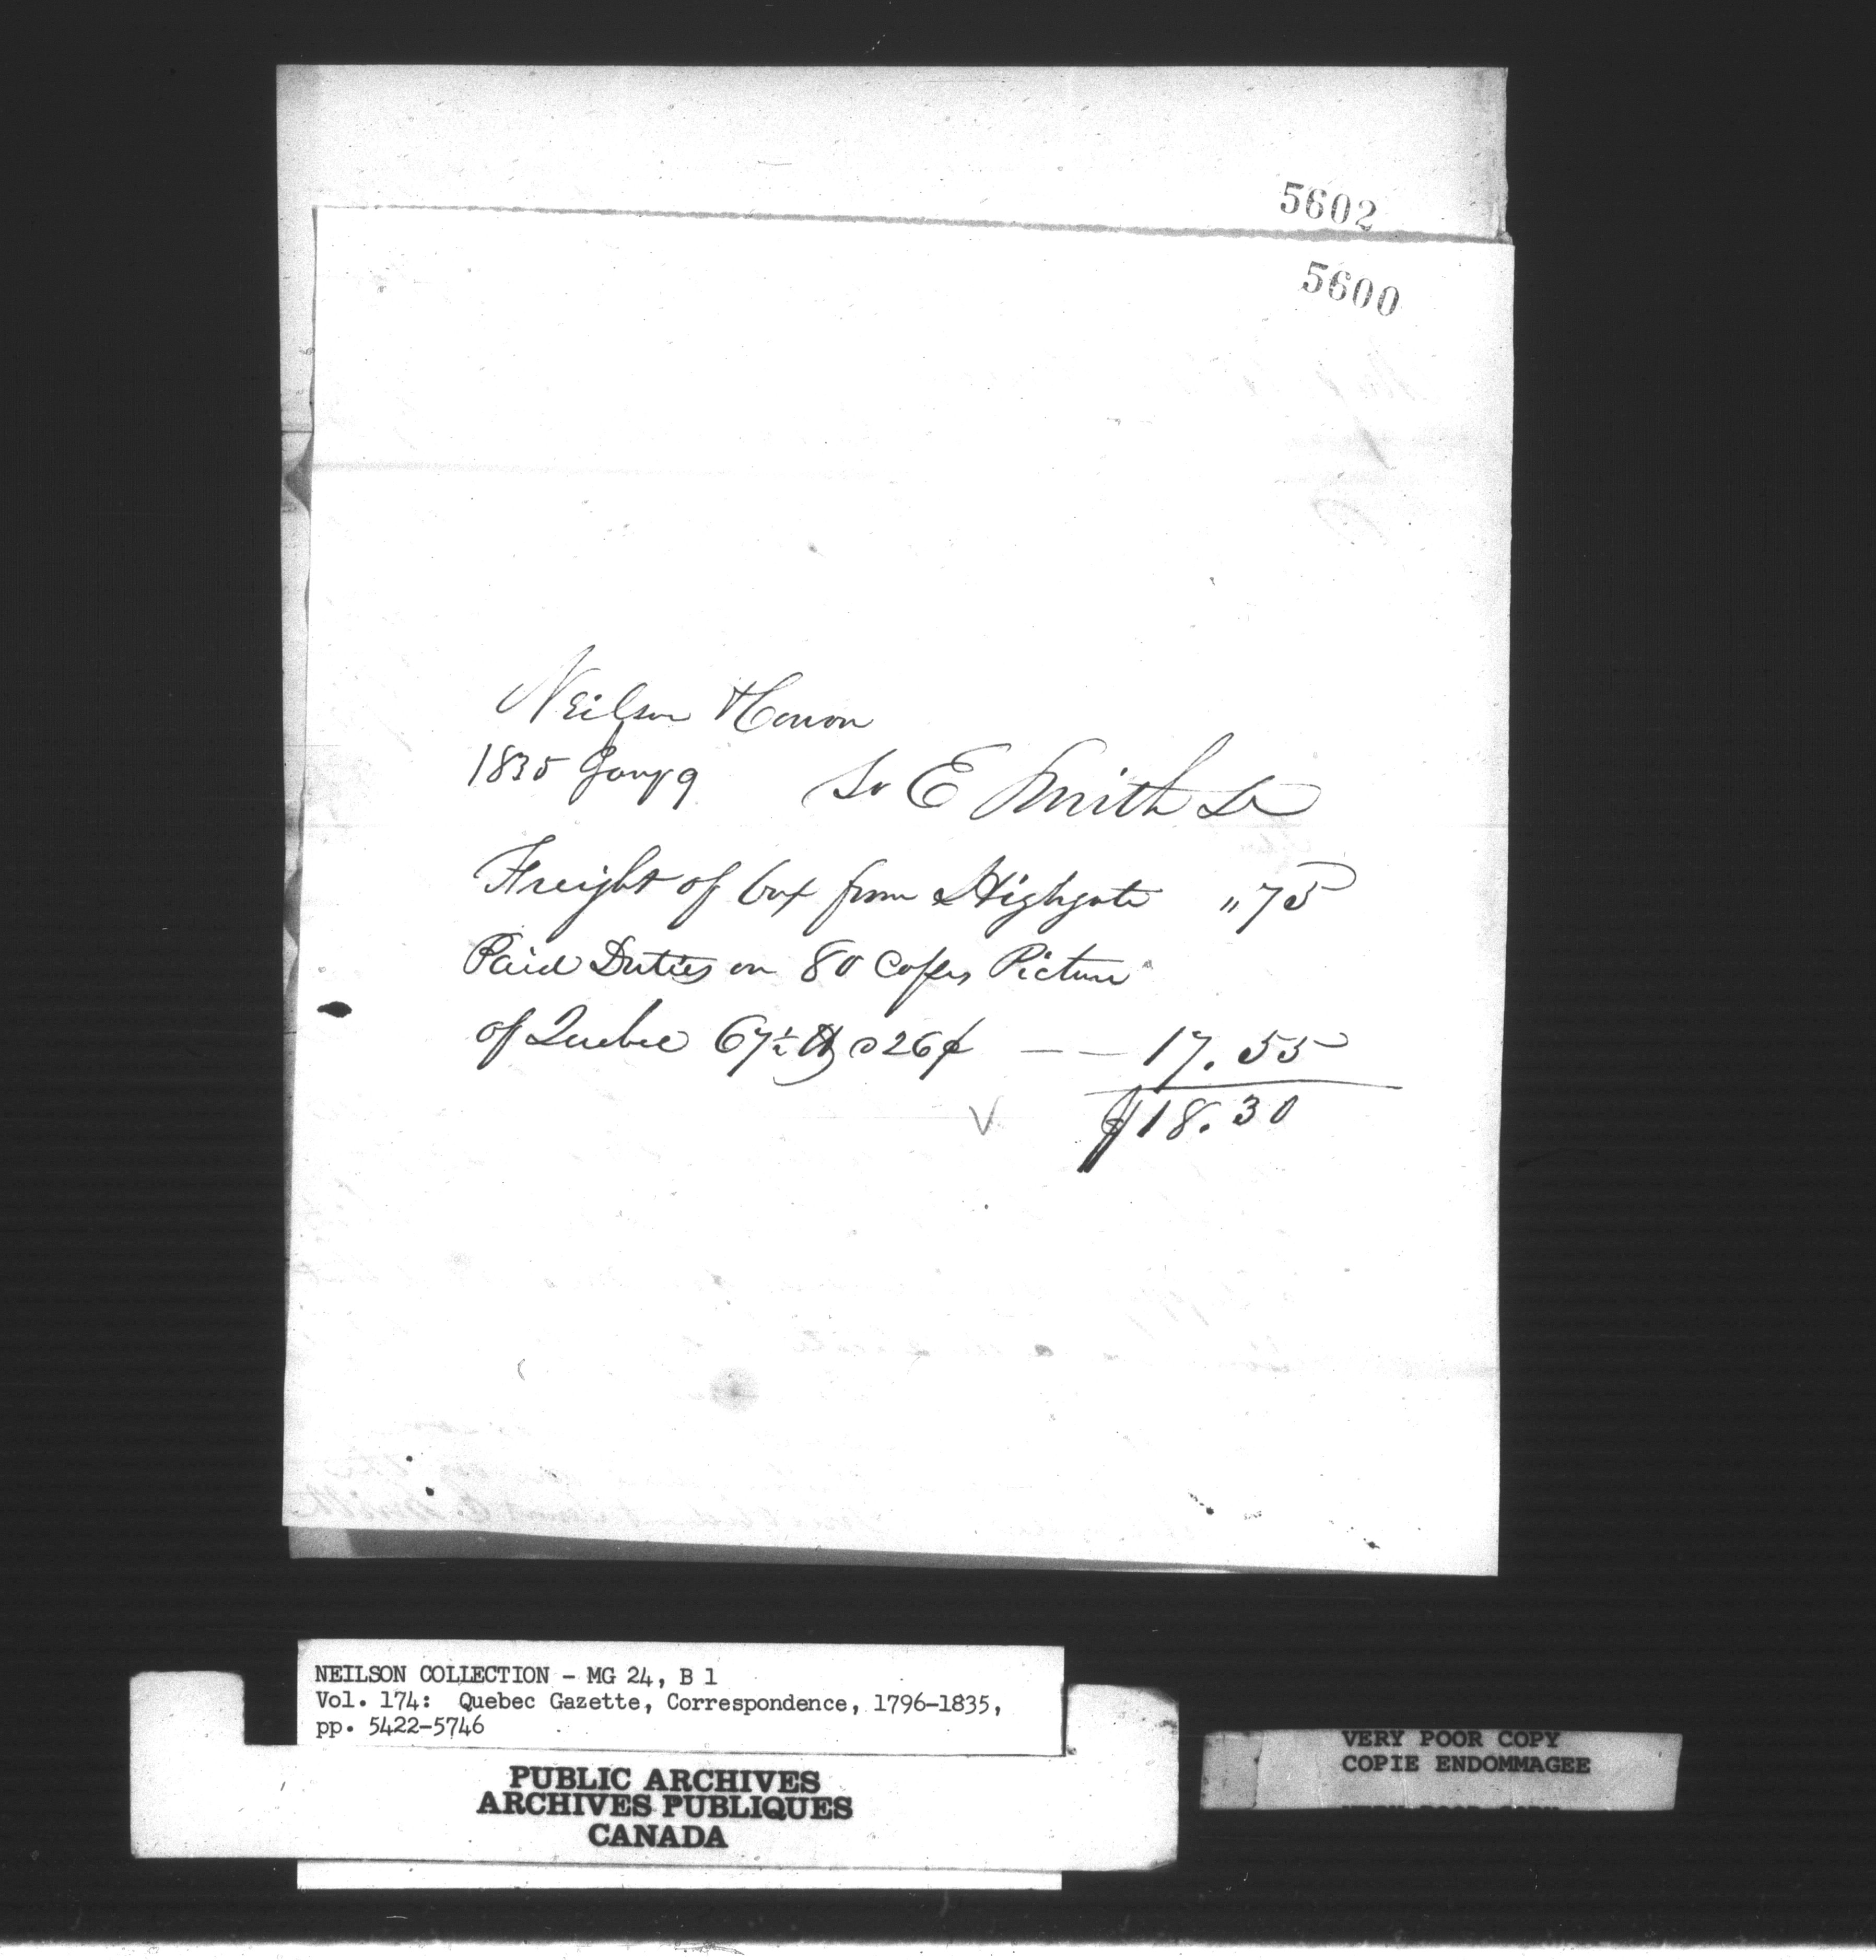 5602
5600
Neilson & Cowan
1835 Jany 9 To E Smith Dr
Freight of box from Highgate " 75
Paid Duties on 80 Copies Picture
of Quebec 67½ lb @ 26¢ — — 17.55
$18.30
NEILSON COLLECTION - MG 24, B 1
Vol. 174: Quebec Gazette, Correspondence, 1796-1835,
pp. 5422-5746
PUBLIC ARCHIVES
ARCHIVES PUBLIQUES
CANADA
VERY POOR COPY
COPIE ENDOMMAGEE